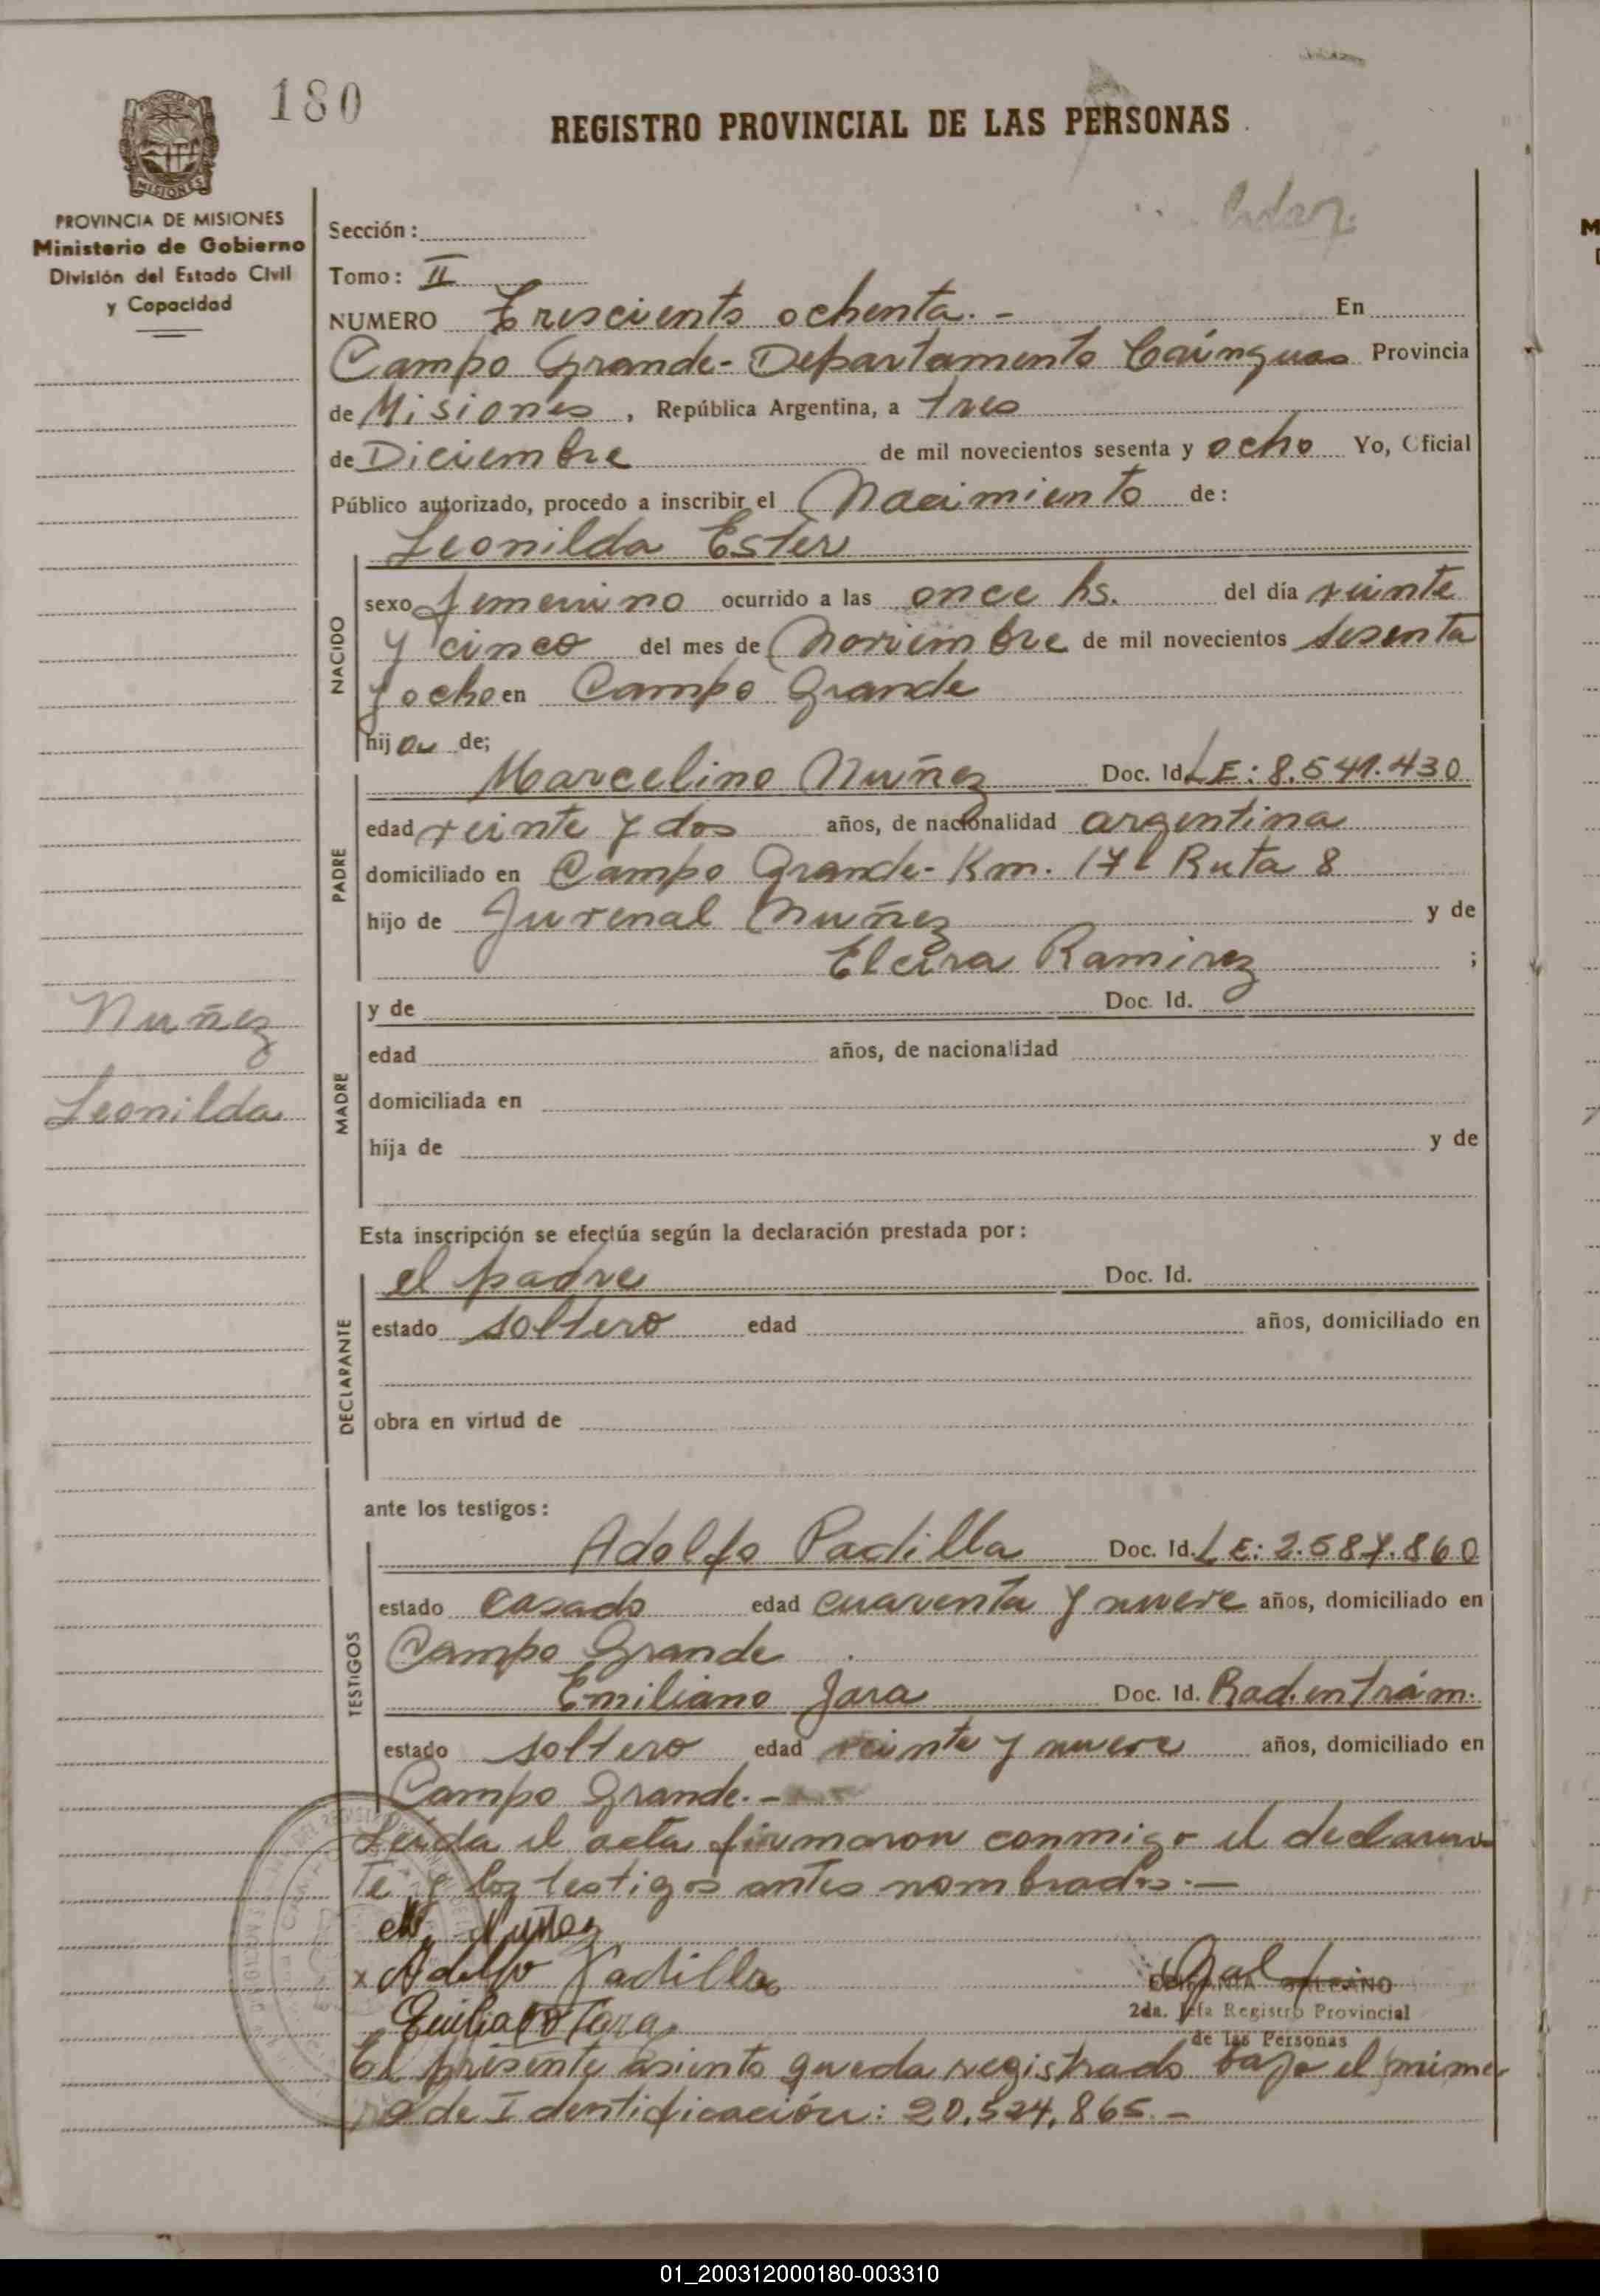 180
REGISTRO PROVINCIAL DE LAS PERSONAS
MISIONES
PROVINCIA DE MISIONES
Ministerio de Gobierno
División del Estado Civil
y Capacidad
Sección:
Tomo: II
NUMERO Trescients ochenta. - En
Campo Grande - Departamento Cainguas Provincia
de Misiones, República Argentina, a tres
de Diciembre de mil novecientos sesenta y ocho Yo, Oficial
Público autorizado, procedo a inscribir el Nacimiento de:
Leonilda Ester
NACIDO
sexo femenino ocurrido a las once hs. del día veinte
y cinco del mes de Noviembre de mil novecientos sesenta
y ocho en Campo Grande
hija de;
PADRE
Marcelino Nuñez Doc. Id. LE: 8.541.430
edad veinte y dos años, de nacionalidad argentina
domiciliado en Campo Grande - Km. 17 Ruta 8
hijo de Juvenal Nuñez y de
Elcira Ramirez ;
Nuñez
Leonilda
MADRE
y de Doc. Id.
edad años, de nacionalidad
domiciliada en
hija de y de
Esta inscripción se efectúa según la declaración prestada por:
DECLARANTE
el padre Doc. Id.
estado soltero edad años, domiciliado en
obra en virtud de
ante los testigos:
TESTIGOS
Adolfo Padilla Doc. Id. LE: 2.587.860
estado casado edad cuarenta y nueve años, domiciliado en
Campo Grande
Emiliano Jara Doc. Id. Rad. en trám.
estado soltero edad veinte y nueve años, domiciliado en
Campo Grande. -
Leida el acta firmaron conmigo el declaran
te y los testigos antes nombrados. -
M. Nuñez
x Adolfo Padilla
Emiliano Jara
GALEANO
2da. Jefa Registro Provincial
de las Personas
El presente asiento queda registrado bajo el núme
ro de Identificación: 20.524.865. -
01_200312000180-003310